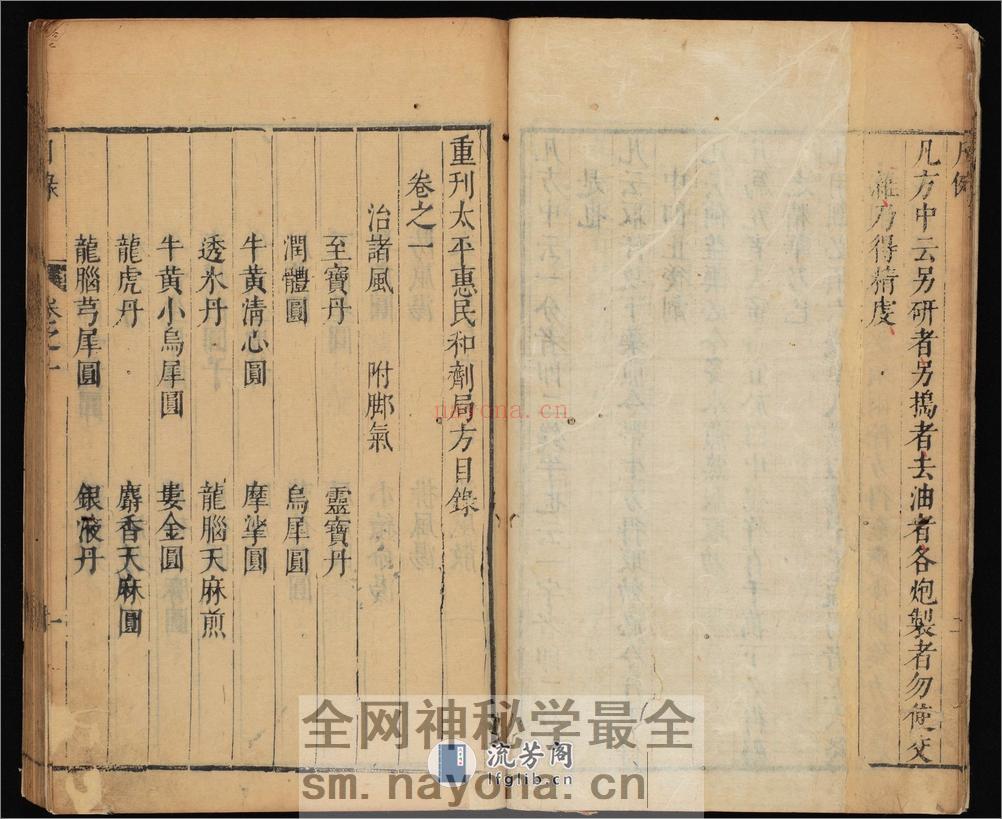 凡方中云另研者另搗者去油者各炮製者勿使交
雜乃得精度
重刊太平惠民和劑局方目錄
卷之一
治諸風 附脚氣
至寶丹 靈寶丹
潤體圓 烏犀圓
牛黃清心圓 摩挲圓
透氷丹 龍腦天麻煎
牛黃小烏犀圓 婁金圓
龍虎丹 麝香天麻圓
龍腦芎犀圓 銀液丹
目錄 卷之一 一
nayona.cn
全网神秘学最全
流芳阁
lfglib.cn
sm.nayona.cn